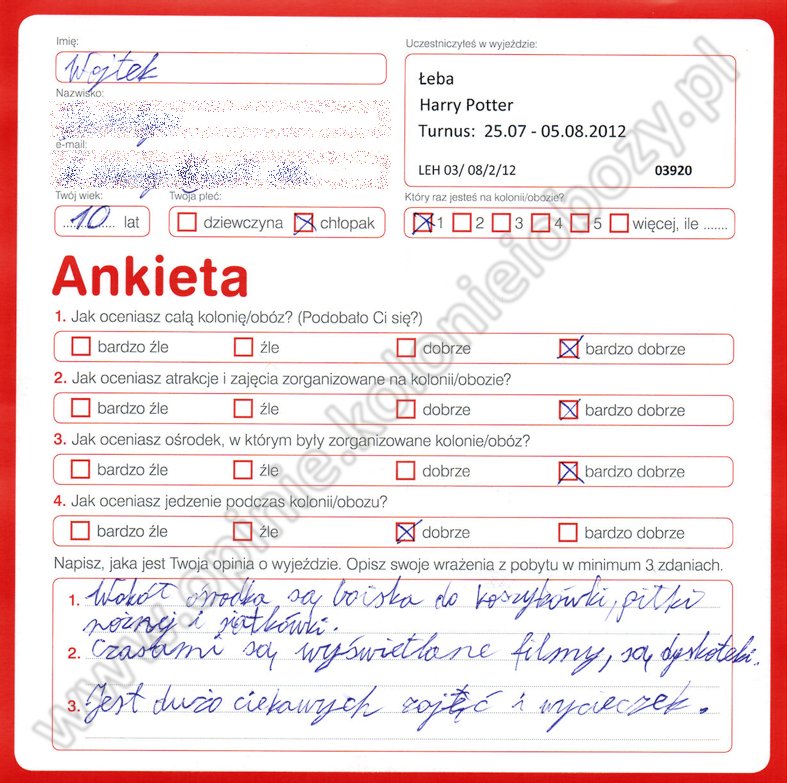 Imię:
Wojtek
Uczestniczyłeś w wyjeździe:
Łeba
Harry Potter
Turnus: 25.07 - 05.08.2012
LEH 03/ 08/2/12 03920
Nazwisko:
e-mail:
Twój wiek:
10 lat
Twoja płeć:
dziewczyna chłopak
Który raz jesteś na kolonii/obozie?
1 2 3 4 5 więcej, ile .......
Ankieta
1. Jak oceniasz całą kolonię/obóz? (Podobało Ci się?)
bardzo źle źle dobrze bardzo dobrze
2. Jak oceniasz atrakcje i zajęcia zorganizowane na kolonii/obozie?
bardzo źle źle dobrze bardzo dobrze
3. Jak oceniasz ośrodek, w którym były zorganizowane kolonie/obóz?
bardzo źle źle dobrze bardzo dobrze
4. Jak oceniasz jedzenie podczas kolonii/obozu?
bardzo źle źle dobrze bardzo dobrze
Napisz, jaka jest Twoja opinia o wyjeździe. Opisz swoje wrażenia z pobytu w minimum 3 zdaniach.
1. Wokół ośrodka są boiska do koszykówki, piłki
nożnej i siatkówki.
2. Czasami są wyświetlane filmy, są dyskoteki.
3. Jest dużo ciekawych zajęć i wycieczek.
www.opinie.kolonieiobozy.pl